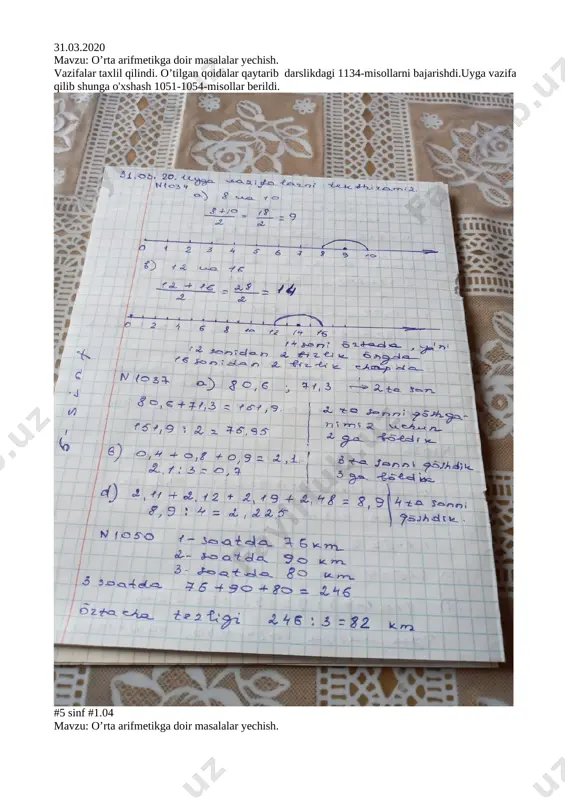 31.03.2020
Mavzu: O’rta arifmetikga doir masalalar yechish.
Vazifalar taxlil qilindi. O’tilgan qoidalar qaytarib darslikdagi 1134-misollarni bajarishdi.Uyga vazifa
qilib shunga o'xshash 1051-1054-misollar berildi.
31.03.20. Uyga vazifalarni tekshiramiz
N1034
a) 8 va 10
8+10/2 = 18/2 = 9
0 1 2 3 4 5 6 7 8 9 10
b) 12 va 16
12 + 16/2 = 28/2 = 14
0 2 4 6 8 10 12 14 16
14 soni o‘rtada, ya'ni
12 sonidan 2 birlik o‘ngda
16 sonidan 2 birlik chapda
N1037 a) 80,6 ; 71,3 → 2 ta son
80,6+71,3 = 151,9
151,9 : 2 = 75,95
2 ta sonni qo‘shga-
nimiz uchun
2 ga bo‘ldik
b) 0,4 + 0,8 + 0,9 = 2,1
2,1 : 3 = 0,7
3 ta sonni qo‘shdik
3 ga bo‘ldik
d) 2,11 + 2,12 + 2,19 + 2,48 = 8,9
8,9 : 4 = 2,225
4 ta sonni
qo‘shdik.
N1050 1-soatda 76 km
2-soatda 90 km
3-soatda 80 km
3 soatda 76+90+80 = 246
o‘rtacha tezligi 246 : 3 = 82 km
#5 sinf #1.04
Mavzu: O’rta arifmetikga doir masalalar yechish.